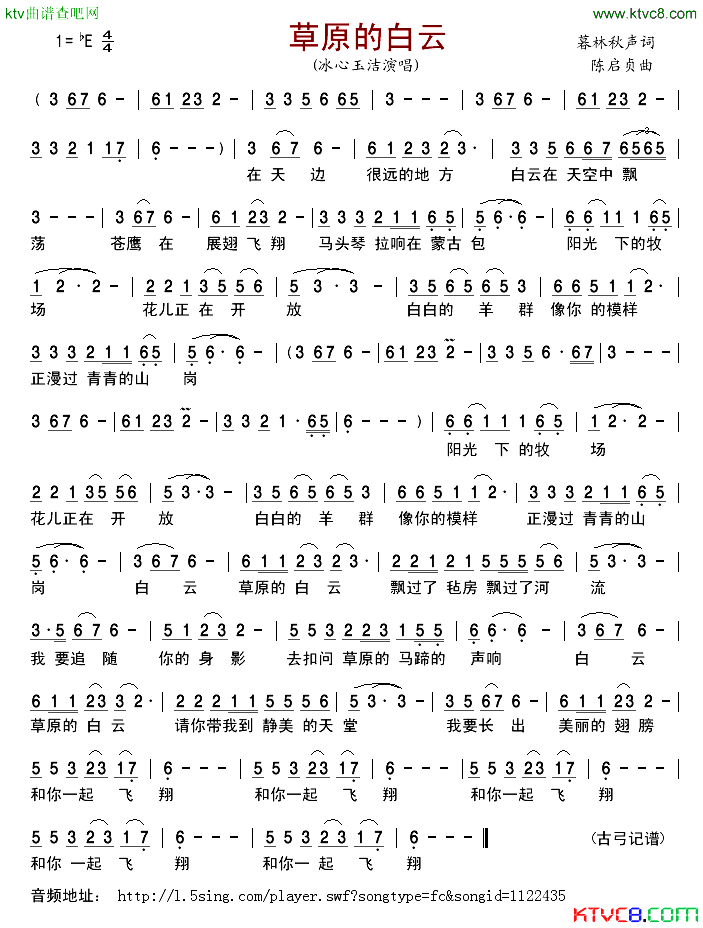 ktv曲谱查吧网
www.ktvc8.com
1=♭E 4/4
草原的白云
暮林秋声词
(冰心玉洁演唱)
陈启贞曲
( 3 67 6 - | 61 23 2 - | 3 3 5 6 65 | 3 - - - | 3 67 6 - | 61 23 2 - |
3 3 2 1 17 | 6 - - - ) | 3 6 7 6 - | 6 1 2 3 2 3· | 3 3 5 6 6 7 6565 |
在 天 边 很远的地 方 白云在 天空中 飘
3 - - - | 3 67 6 - | 6 1 23 2 - | 3 3 3 2 1 1 6 5 | 5 6· 6 - | 6 6 1 1 1 6 5 |
荡 苍鹰 在 展翅 飞 翔 马头琴 拉响在 蒙古 包 阳光 下的牧
1 2· 2 - | 2 2 1 3 5 5 6 | 5 3· 3 - | 6 5 3 6 5 6 5 3 | 6 6 5 1 1 2 · |
场 花儿正 在 开 放 白白的 羊 群 像你 的模样
3 3 3 2 1 1 6 5 | 5 6· 6 - | (3 67 6 - | 61 23 2 - | 3 3 5 6· 67 | 3 - - - |
正漫过 青青的山 岗
3 67 6 - | 61 23 2 - | 3 3 2 1· 65 | 6 - - - ) | 6 6 1 1 1 6 5 | 1 2· 2 - |
阳光 下 的牧 场
2 2 1 35 56 | 5 3· 3 - | 6 5 3 6 5 6 5 3 | 6 6 5 1 1 2 · | 3 3 3 2 1 1 6 5 |
花儿正在 开 放 白白的 羊 群 像你的模样 正漫过 青青的山
5 6· 6 - | 3 6 7 6 - | 6 1 1 2 3 2 3· | 2 2 1 2 1 5 5 5 5 6 | 5 3· 3 - |
岗 白 云 草原的 白 云 飘过了 毡房 飘过了河 流
3·5 6 7 6 - | 5 1 2 3 2 - | 5 5 3 2 2 3 1 5 5 | 6 6· 6 - | 3 67 6 - |
我 要追 随 你的 身 影 去扣问 草原的 马蹄的 声响 白 云
6 1 1 23 3 2· | 2 2 2 1 1 5 5 5 6 | 5 3· 3 - | 3 6 7 6 - | 5 1 2 3 2 - |
草原的 白 云 请你带我到 静美 的天 堂 我要长 出 美丽的 翅 膀
5 5 3 23 17 | 6 - - - | 5 5 3 23 17 | 6 - - - |
和你一起 飞 翔 和你一起 飞 翔
5 5 3 2 3 1 7 | 6 - - - | 5 5 3 2 3 1 7 | 6 - - - ‖
(古弓记谱)
和你 一起 飞 翔 和你一 起 飞 翔
音频地址: http://l.5sing.com/player.swf?songtype=fc&songid=1122435
KTVC8.COM